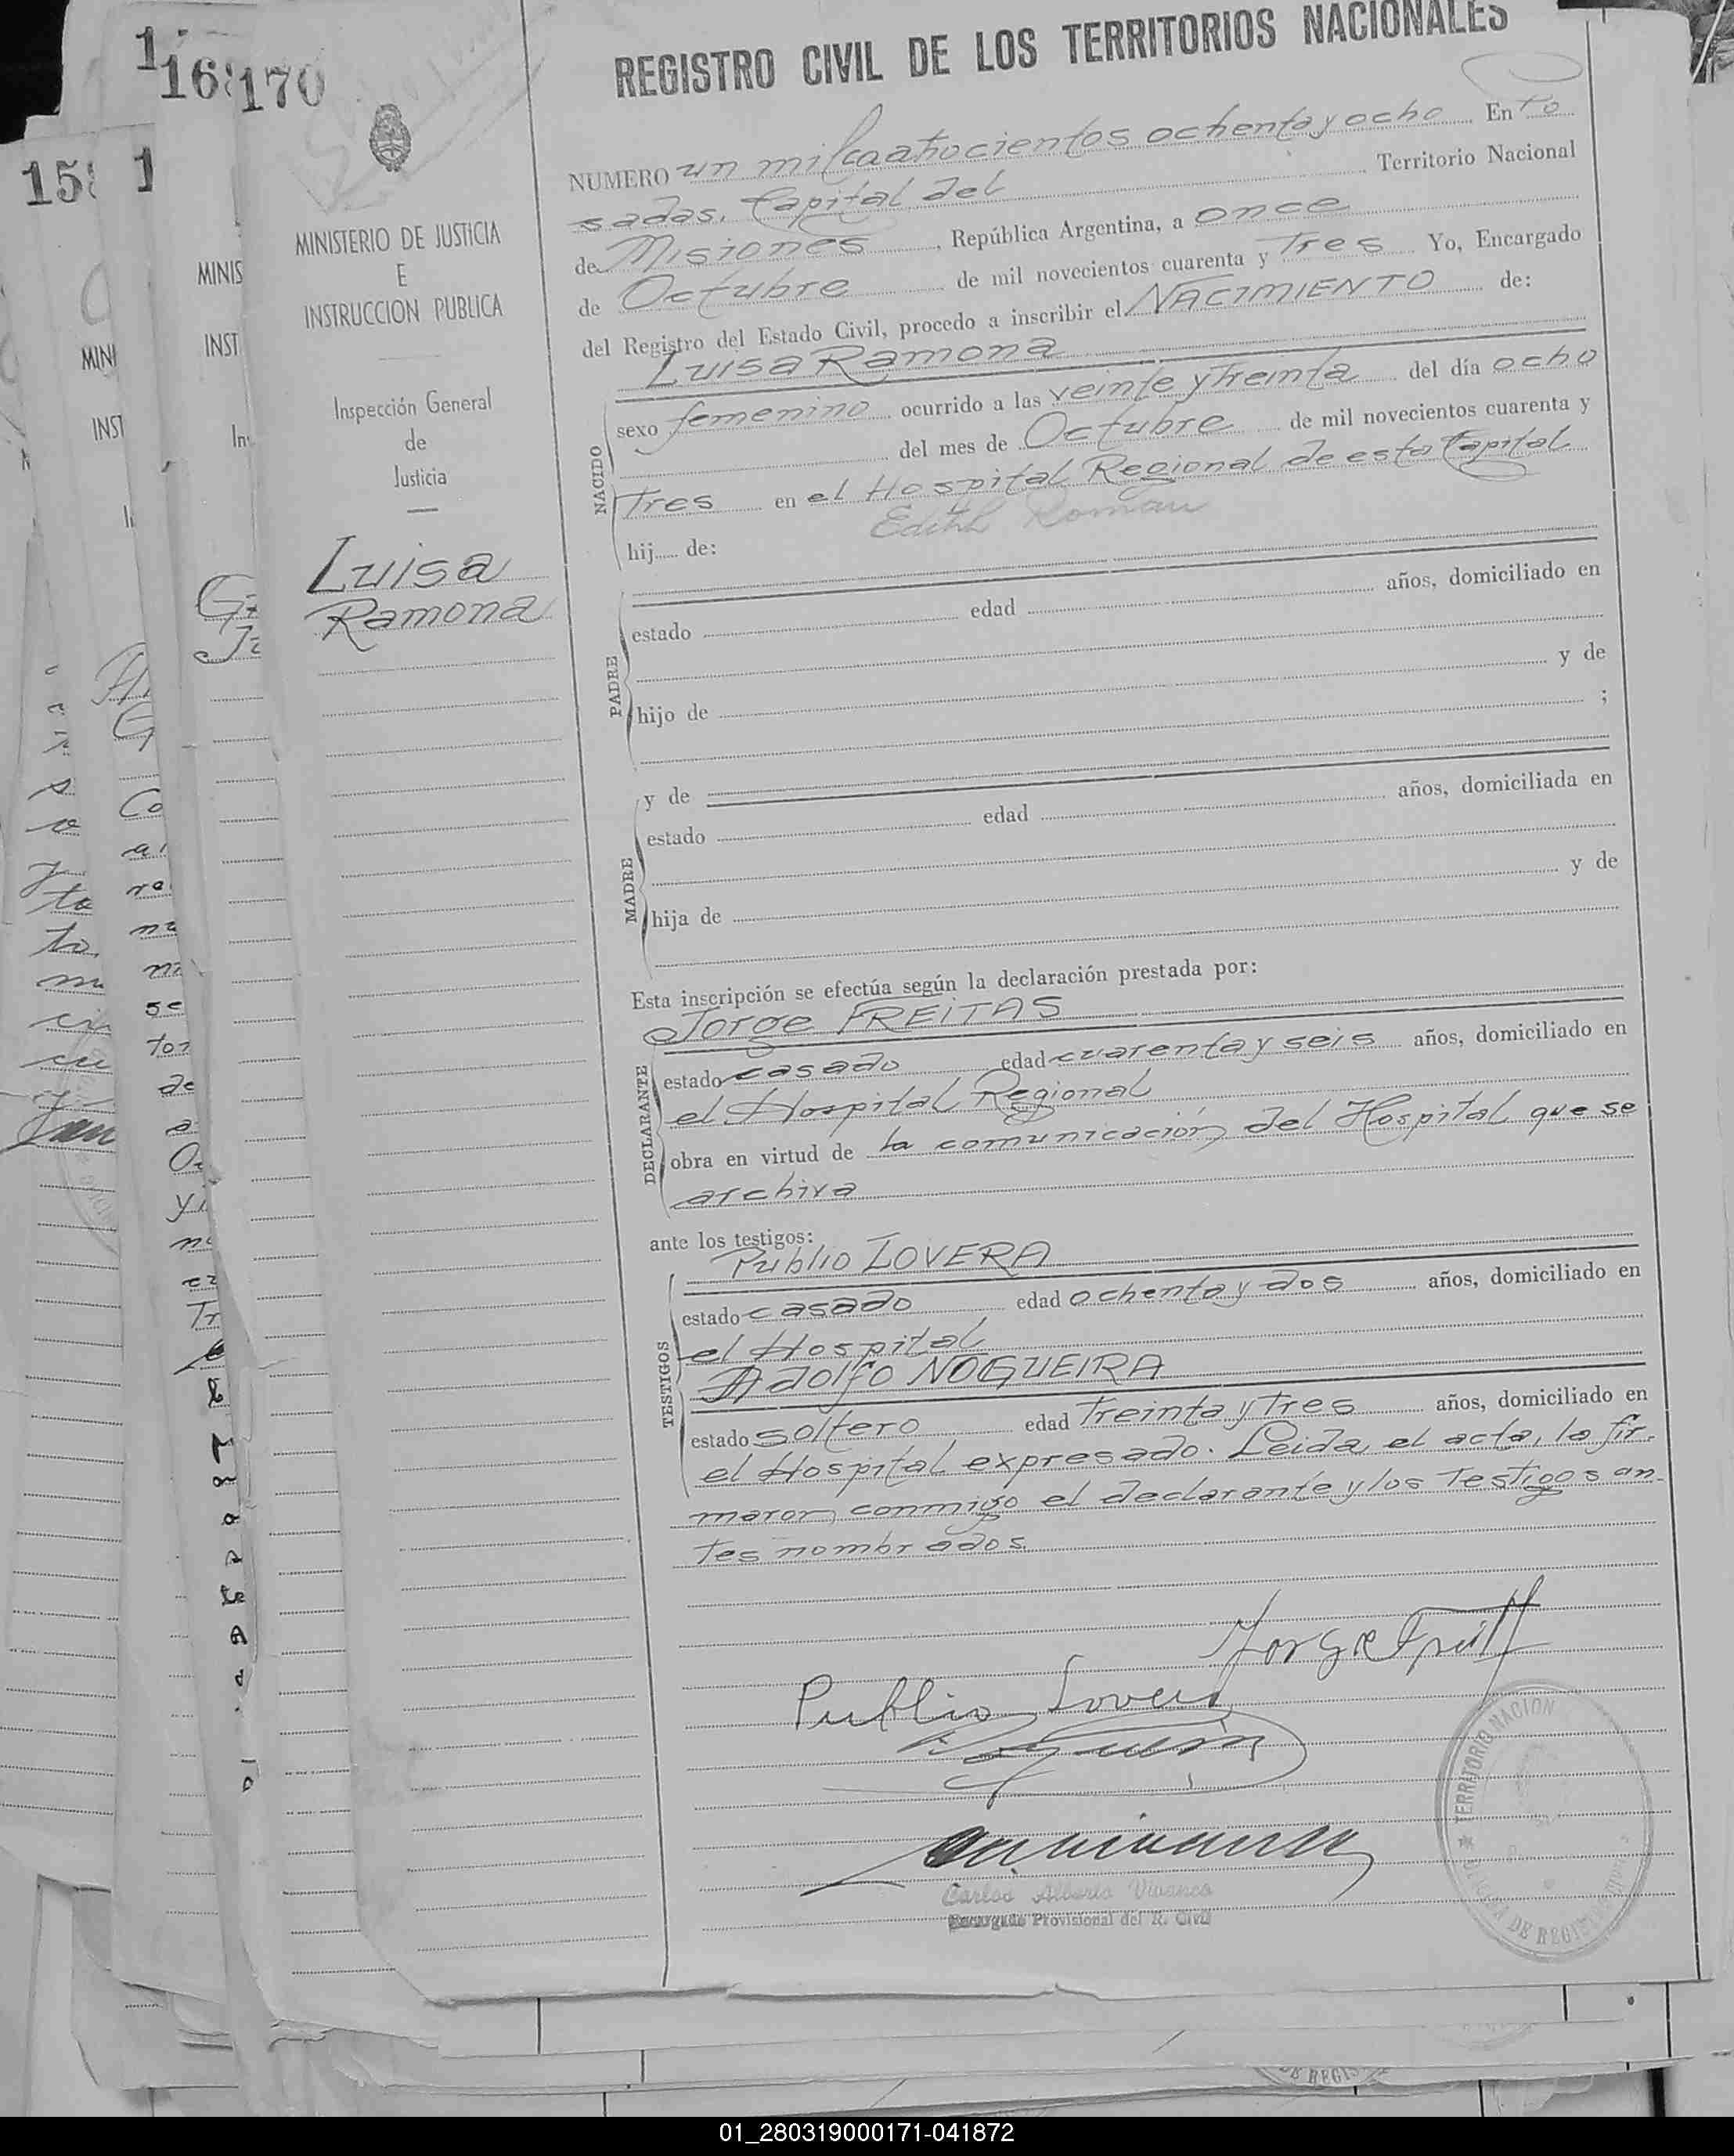 170
REGISTRO CIVIL DE LOS TERRITORIOS NACIONALES
MINISTERIO DE JUSTICIA
E
INSTRUCCION PUBLICA
Inspección General
de
Justicia
Luisa
Ramona
NUMERO un mil ochenta y ocho En Po
sadas, Capital del Territorio Nacional
de Misiones, República Argentina, a once
de Octubre de mil novecientos cuarenta y Tres Yo, Encargado
del Registro del Estado Civil, procedo a inscribir el NACIMIENTO de:
Luisa Ramona
NACIDO
sexo femenino ocurrido a las veinte y treinta del día ocho
del mes de Octubre de mil novecientos cuarenta y
Tres en el Hospital Regional de esta Capital
Edith Roman
hij de:
PADRE
estado edad años, domiciliado en
hijo de y de
;
y de
MADRE
estado edad años, domiciliada en
hija de y de
Esta inscripción se efectúa según la declaración prestada por:
Jorge FREITAS
DECLARANTE
estado casado edad cuarenta y seis años, domiciliado en
el Hospital Regional
obra en virtud de la comunicación del Hospital que se
archiva
ante los testigos:
Publio LOVERA
TESTIGOS
estado casado edad ochenta y dos años, domiciliado en
el Hospital
Adolfo NOGUEIRA
estado soltero edad Treinta y Tres años, domiciliado en
el Hospital expresado. Leida el acta, la fir-
maron conmigo el declarante y los Testigos an-
tes nombrados.
Publio Lovera
Carlos Alberto Vivanco
Encargado Provisional del R. Civil
TERRITORIO NACION
01_280319000171-041872